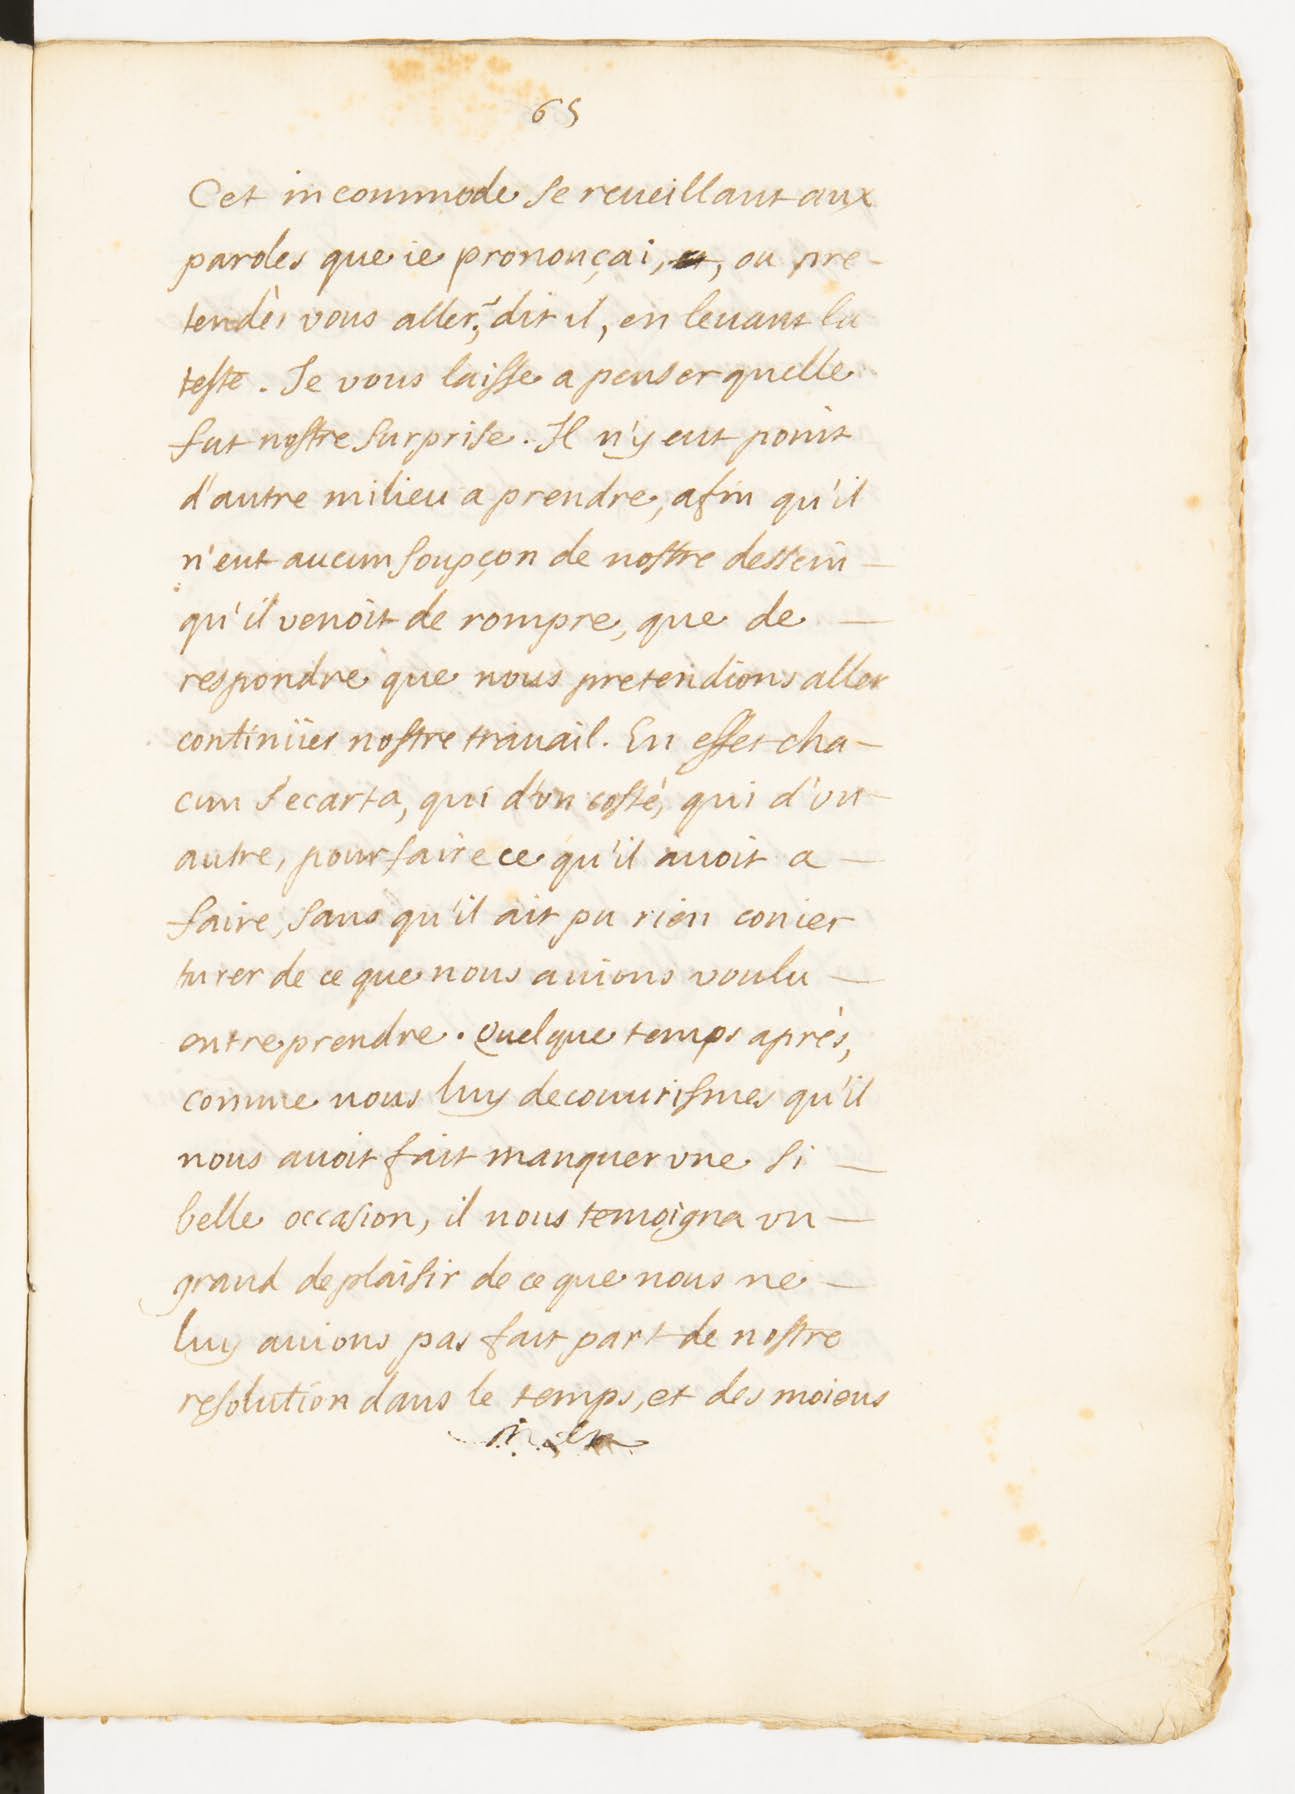 65
Cet incommode se reueillant aux
paroles que ie prononçai, ou pre-
tendès vous aller, dit il, en leuant la
teste. Je vous laisse a penser quelle
fut nostre surprise. Il n'y eut point
d'autre milieu a prendre, afin qu'il
n'eut aucun soupçon de nostre dessein
qu'il venoit de rompre, que de
respondre que nous pretendions aller
continüer nostre trauail. En effet cha-
cun s'ecarta, qui d'vn costé, qui d'vn
autre, pour faire ce qu'il auoit a
faire, sans qu'il ait pu rien conier
turer de ce que nous auions voulu
entreprendre. Quelque temps aprés,
comme nous luy decouurismes qu'il
nous auoit fait manquer vne si
belle occasion, il nous temoigna vn
grand deplaisir de ce que nous ne
luy auions pas fait part de nostre
resolution dans le temps, et des moiens